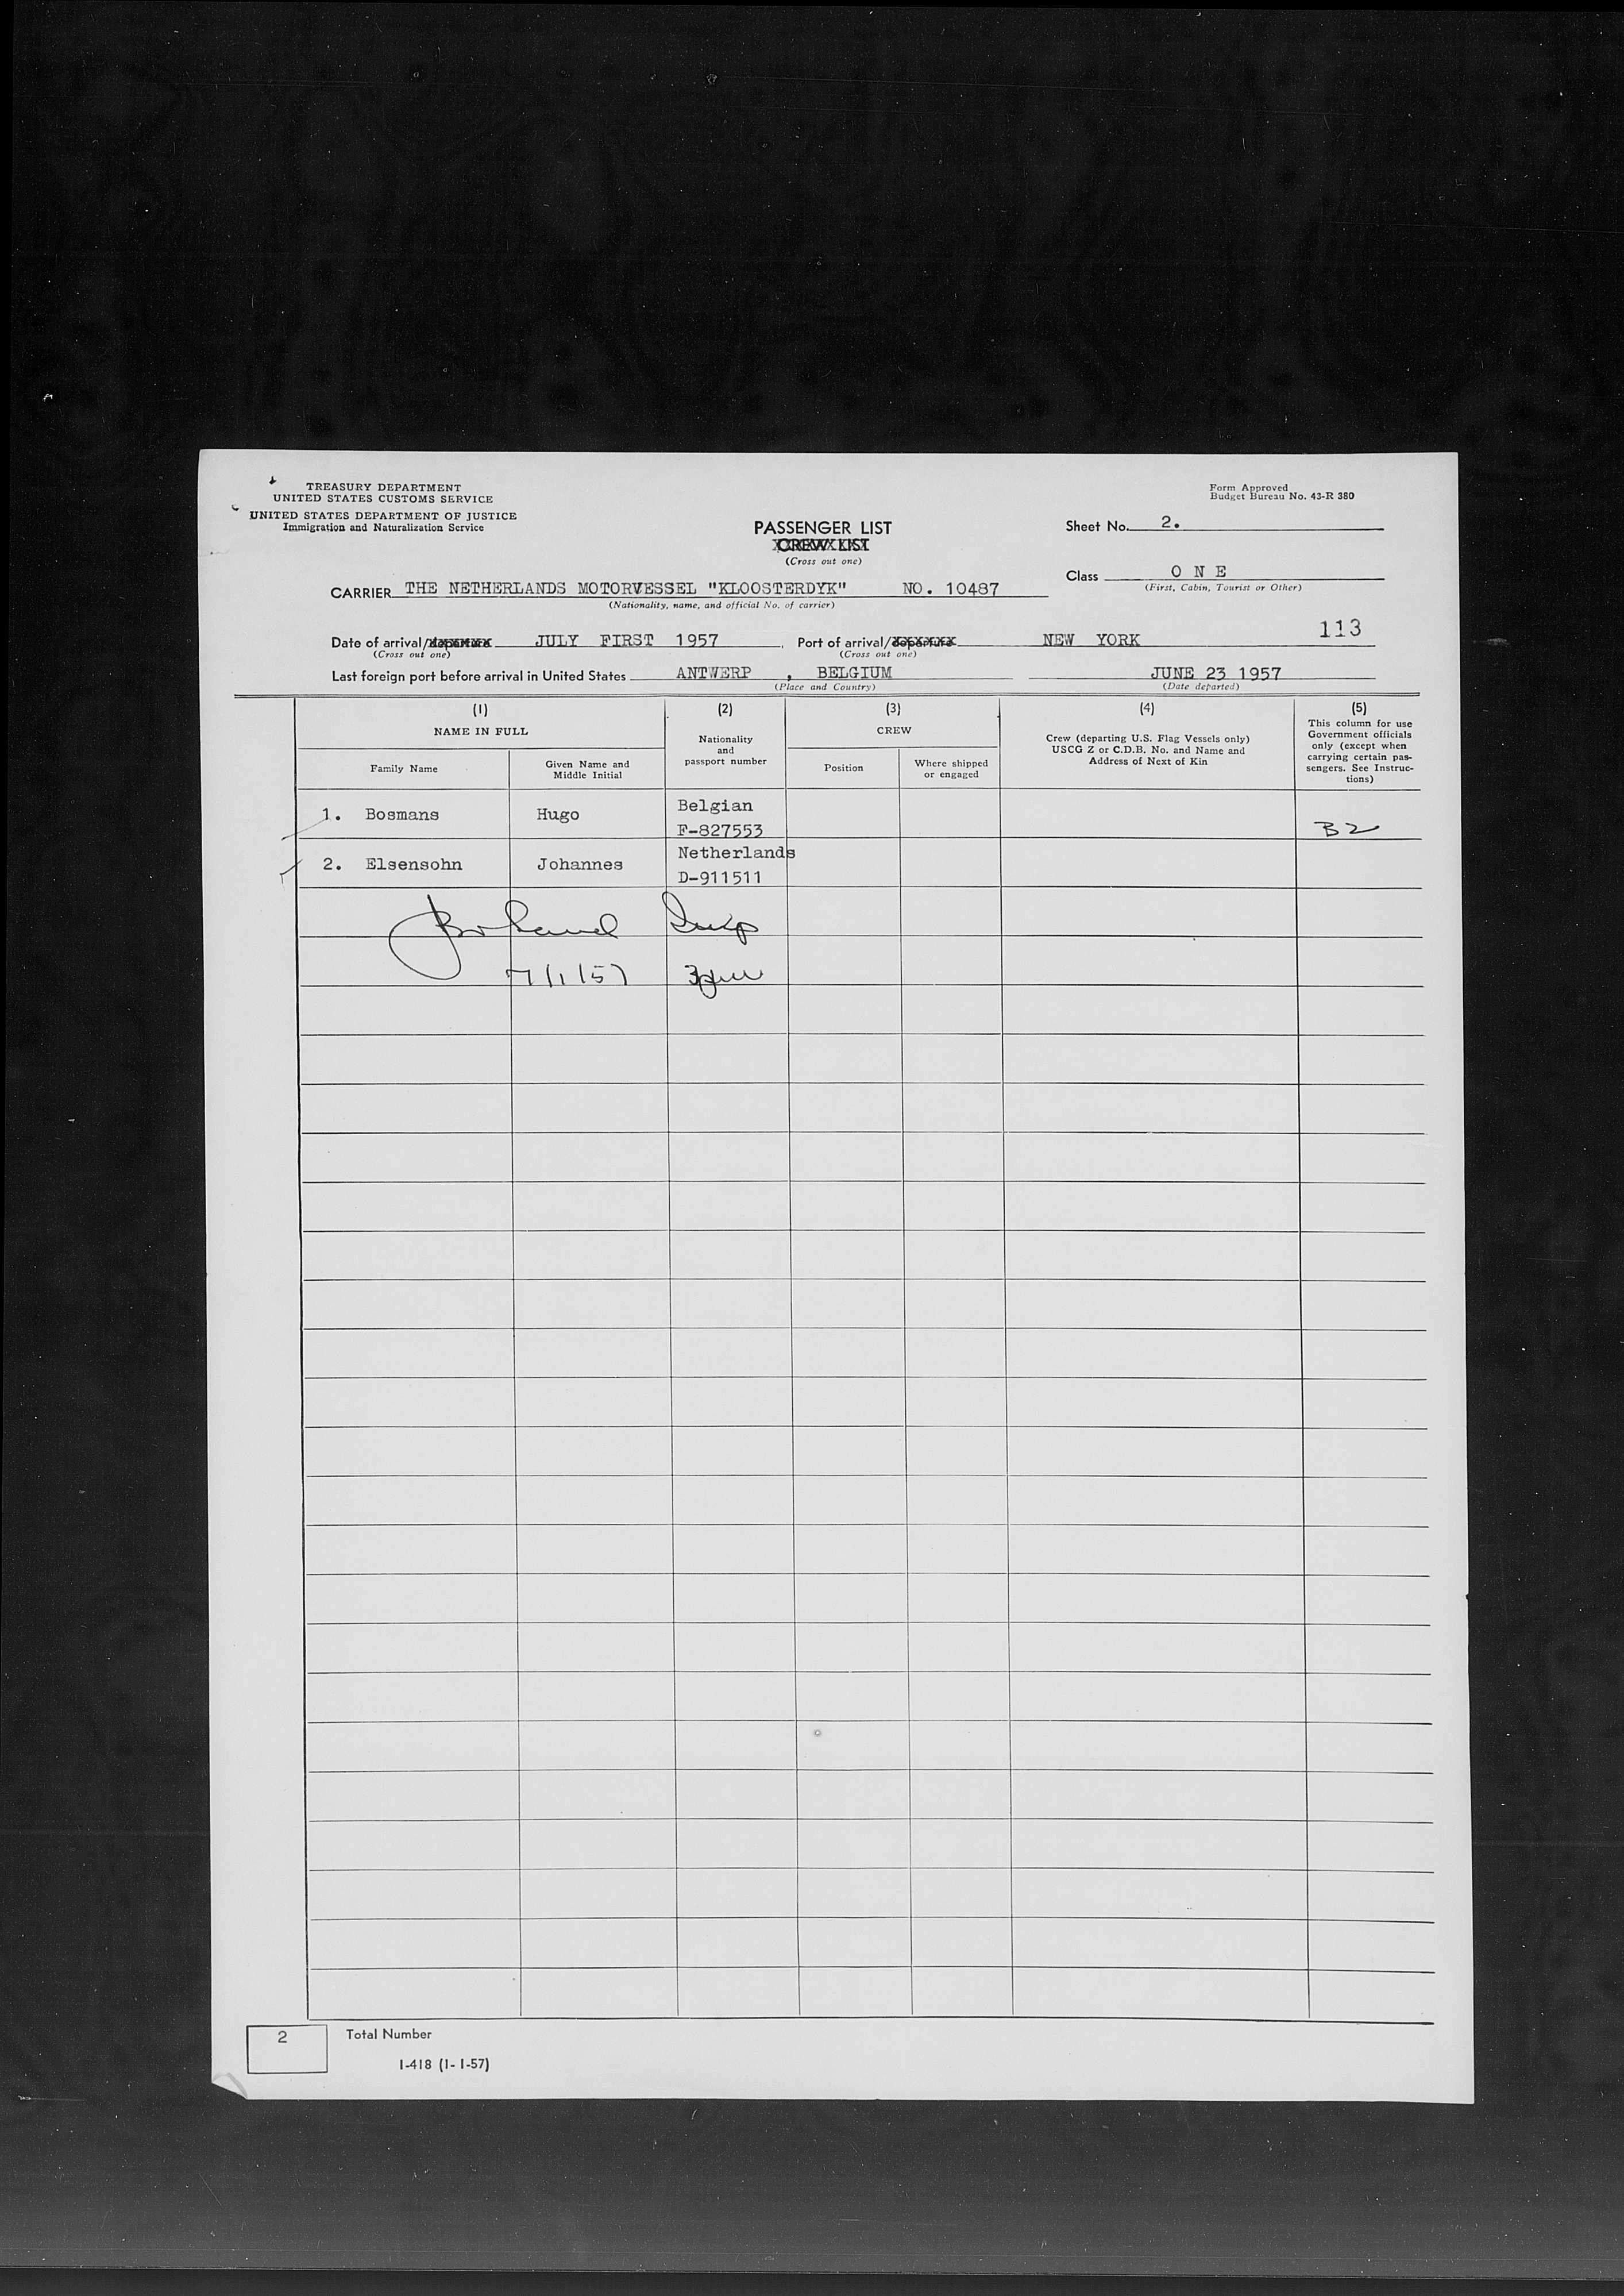 TREASURY DEPARTMENT
UNITED STATES CUSTOMS SERVICE
UNITED STATES DEPARTMENT OF JUSTICE
Immigration and Naturalization Service
Form Approved
Budget Bureau No. 43-R 380
PASSENGER LIST
CREW LIST
(Cross out one)
Sheet No. 2.
Class O N E
(First, Cabin, Tourist or Other)
CARRIER THE NETHERLANDS MOTORVESSEL "KLOOSTERDYK" NO. 10487
(Nationality, name, and official No. of carrier)
113
Date of arrival/departure JULY FIRST 1957, Port of arrival/departure NEW YORK
(Cross out one) (Cross out one)
Last foreign port before arrival in United States ANTWERP, BELGIUM JUNE 23 1957
(Place and Country) (Date departed)
(1) (2) (3) (4) (5)
NAME IN FULL
Family Name
Given Name and
Middle Initial
Nationality
and
passport number
CREW
Position
Where shipped
or engaged
Crew (departing U.S. Flag Vessels only)
USCG Z or C.D.B. No. and Name and
Address of Next of Kin
This column for use
Government officials
only (except when
carrying certain pas-
sengers. See Instruc-
tions)
1. Bosmans Hugo Belgian
F-827553 B2
2. Elsensohn Johannes Netherlands
D-911511
7/1/57
2 Total Number
I-418 (1-1-57)